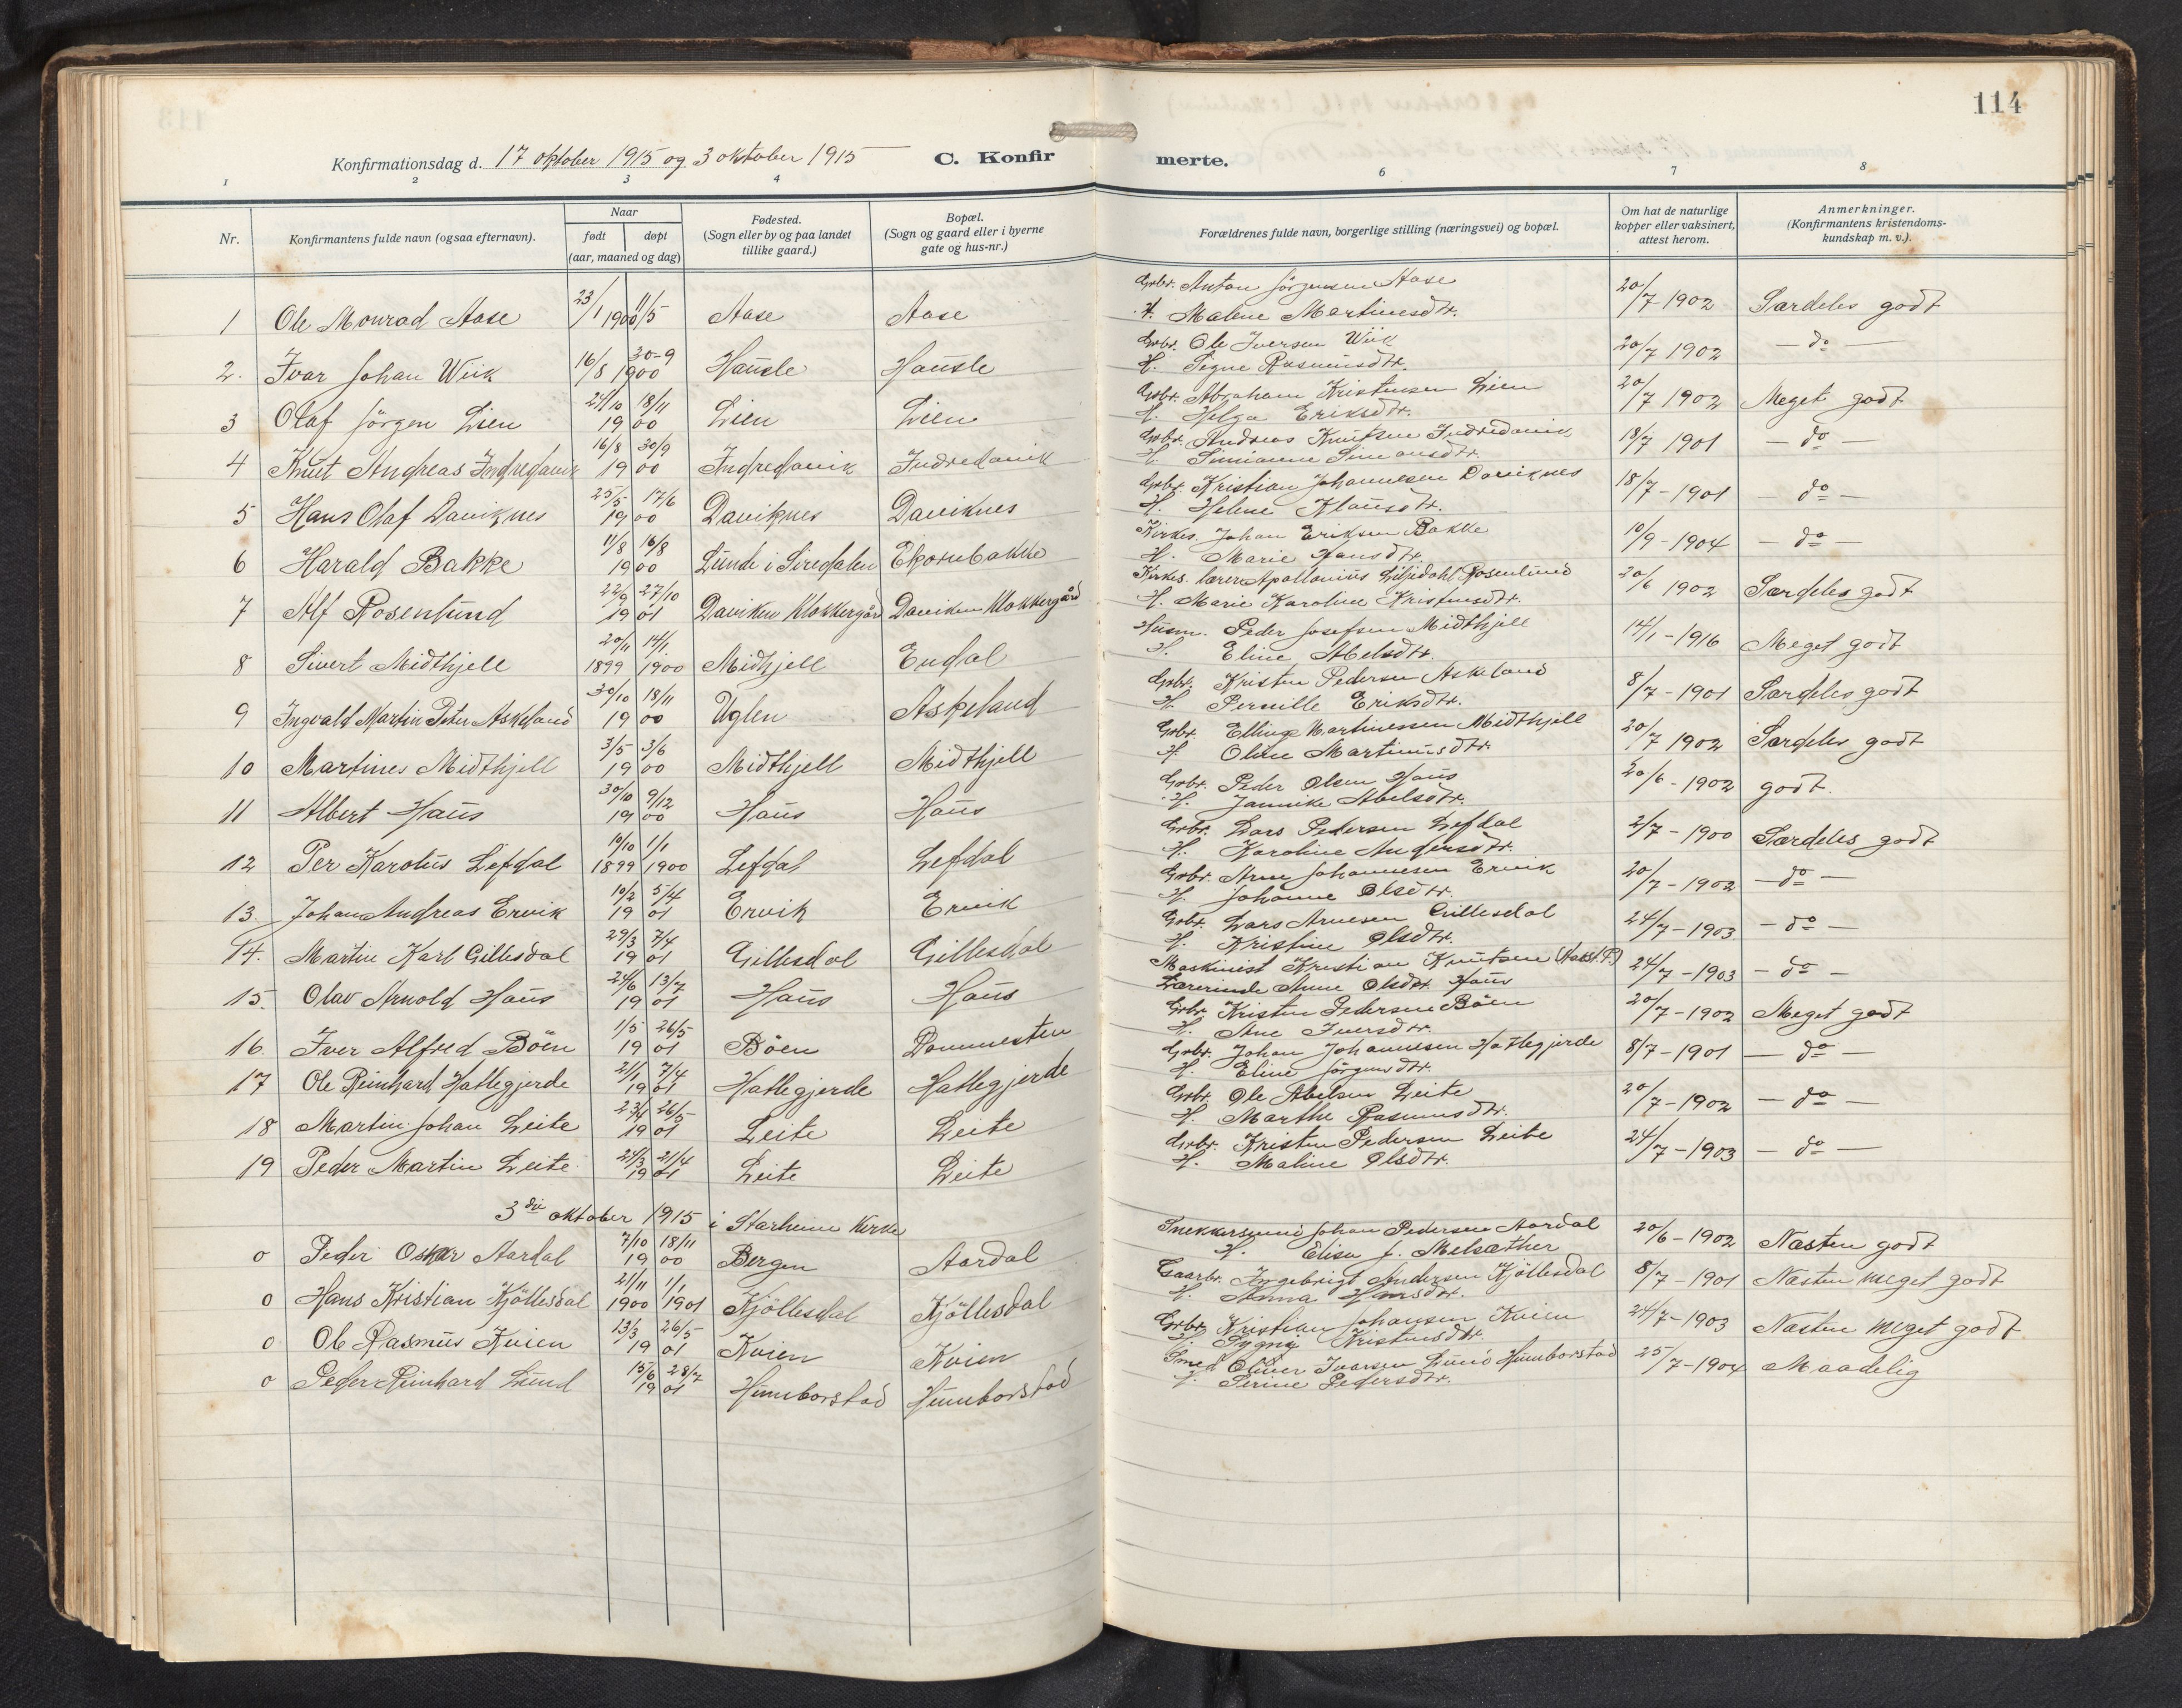 114
Konfirmationsdag d. 17 oktober 1915 og 3 oktober 1915 C. Konfirmerte.
1 2 3 4 6 7 8
Nr. Konfirmantens fulde navn (ogsaa efternavn). Naar født døpt (aar, maaned og dag) Fødested. (Sogn eller by og paa landet tillike gaard.) Bopæl. (Sogn og gaard eller i byerne gate og hus-nr.) Forældrenes fulde navn, borgerlige stilling (næringsvei) og bopæl. Om hat de naturlige kopper eller vaksinert, attest herom. Anmerkninger. (Konfirmantens kristendomskundskap m. v.).
1 Ole Monrad Aase 23/1 1900 11/5 Aase Aase Grbr. Anton Jörgensen Aase 20/7 1902 Særdeles godt
H. Malene Martinesdtr.
2. Ivar Johan Wiik 16/8 30-9 1900 Hausle Hausle Grbr. Ole Iversen Wiik 20/7 1902 – do –
H. Signe Rasmusdtr.
3 Olaf Jörgen Lien 24/10 18/11 1900 Lien Lien Grbr. Abraham Kristensen Lien 20/7 1902 Meget godt
H. Helga Eriksdtr.
4 Knut Andreas Indredavik 16/8 30/9 1900 Indredavik Indredavik Grbr. Andreas Knutsen Indredavik 18/7 1901 – do –
H. Simianne Simonsdtr.
5 Hans Olaf Daviknes 25/5 17/6 1900 Daviknes Daviknes Grbr. Kristian Johannesen Daviknes 18/7 – 1901 – do –
H. Helene Klausdtr.
6 Harald Bakke 11/8 16/8 1900 Lunde i Siredalen Ekornbakke Kirkes. Johan Eriksen Bakke 10/9 – 1904 – do –
H. Marie Hansdtr.
7 Alf Rosenlund 22/9 27/10 1901 Daviken Klokkergård Daviken Klokkergård Kirkes. lærer Apollonius Liljedahl Rosenlund 30/6 1902 Særdeles godt
H. Marie Karoline Kristensdtr.
8 Sivert Midthjell 20/11 14/1. 1899 1900 Midhjell Endal Husm. Peder Josefsen Midthjell 14/1 – 1916 Meget godt
H. Eline Abelsdtr.
9 Ingvald Martin Peter Askeland 30/10 18/11 1900 Uglen Askeland Grbr. Kristen Pedersen Askeland 8/7 – 1901 Særdeles godt
H. Pernille Eriksdtr.
10 Martines Midthjell 3/5 3/6 1900 Midthjell Midthjell Grbr. Elling Martinessen Midthjell 20/7 1902 Særdeles godt
H Oline Martinusdtr
11 Albert Haus 30/10 9/12 1900 Haus Haus Grbr. Peder Olsen Haus 20/6 – 1902 godt.
H. Jannike Abelsdtr.
12 Per Karolus Lefdal 10/10 1/1 1899 1900 Lefdal Lefdal Grbr. Lars Pedersen Lefdal 2/7 – 1900 Særdeles godt
H. Karoline Andersdtr.
13. Johan Andreas Ervik 10/2 5/4 1901 Ervik Ervik Grbr. Arne Johannesen Ervik 20/7 – 1902 – do –
H. Johanne Olsdtr.
14. Martin Karl Gillesdal 29/3 7/4 1901 Gillesdal Gillesdal Grbr. Lars Arnesen Gillesdal 24/7 – 1903 – do –
H. Kristine Olsdtr.
15. Olav Arnold Haus 24/6 13/7 1901 Haus Haus Maskinist Kristian Knutsen 24/7 – 1903 – do –
Lærerinde Anne Olsdtr. Haus
16. Iver Alfred Böen 1/5 26/5 1901 Böen Dommesten Grbr. Kristen Pedersen Böen 20/7 – 1902 Meget godt
H. Ane Iversdtr.
17 Ole Reinhard Hatlegjerde 2/1 7/4 1901 Hatlegjerde Hatlegjerde Grbr. Johan Johannesen Hatlegjerde 8/7 – 1901 – do –
H. Eline Jörgensdtr.
18 Martin Johan Leite 23/4 26/5 1901 Leite Leite Grbr. Ole Abelsen Leite 20/7 – 1902 – do –
H. Marthe Rasmusdtr.
19 Peder Martin Leite 24/3 21/4 1901 Leite Leite Grbr. Kristen Pedersen Leite 24/7 – 1903 – do –
H. Maline Olsdtr.
3die oktober 1915 i Starheim Kirke
o Peder Oskar Aardal 7/10 18/11 1900 Bergen Aardal Snekkersvend Johan Pedersen Aardal 20/6 – 1902 Næsten godt
H. Elisa J. Melsæther
o Hans Kristian Kjöllesdal 21/11 1/1 1900 1901 Kjöllesdal Kjöllesdal Gaarbr. Ingebrigt Andersen Kjöllesdal 8/7 – 1901 Næsten meget godt
H. Anna Hansdtr.
o Ole Rasmus Kvien 13/3 26/5 1901 Kvien Kvien Grbr. Kristian Johansen Kvien 24/7 – 1903 Næsten meget godt
H. Kristensdtr.
o Peder Reinhard Lund 15/6 28/7 1901 Humborstad Humborstad Smed Oliver Ivarsen Lund Humborstad 25/7 – 1904 Maadelig
H. Perine Pedersdtr.